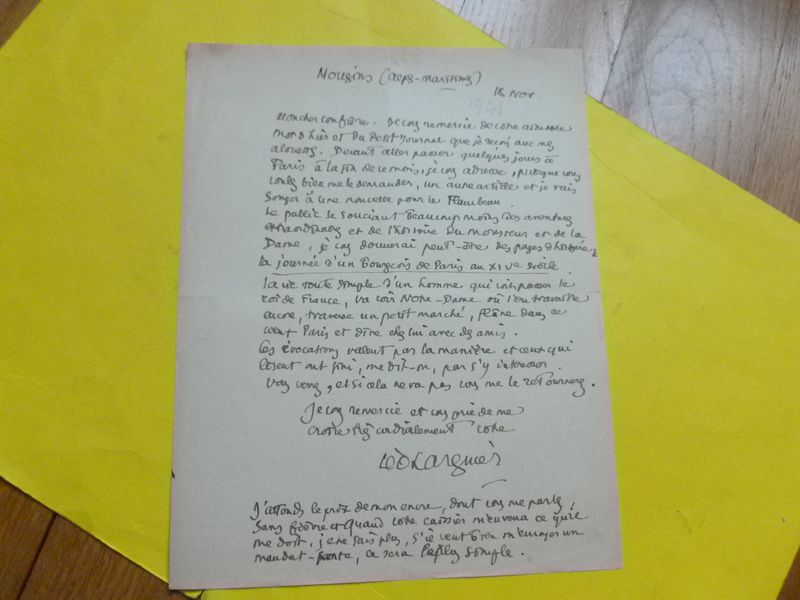 Mougins (Alpes-Maritimes)
18 Nov.
Mon cher confrère. Je vous remercie de votre aimable
mot d'hier et du Petit Journal que je reçois avec mes
. Devant aller passer quelques jours à
Paris à la fin de ce mois, je vous adresse, puisque vous
voulez bien me le demander, un autre article et je vais
songer à une nouvelle pour le Flambeau.
Le public se souciant beaucoup moins des aventures
extraordinaires et de l'histoire du monsieur et de la
Dame, je vous donnerai peut-être des pages d'histoire,
la journée d'un Bourgeois de Paris au XIVe siècle.
la vie toute simple d'un homme qui voit passer le
roi de France, va voir Notre-Dame où l'on travaille
encore, traverse un petit marché, flâne dans ce
vieux Paris et dîne chez lui avec des amis.
Ces évocations valent par la manière et ceux qui
lisent ont fini, me dit-on, par s'y intéresser.
Vous verrez, et si cela ne va pas vous me le retournerez.
Je vous remercie et vous prie de me
croire très cordialement votre
Léo Larguier
J'attends le prix de mon encre, dont vous me parlez,
sans fièvre et quand votre caissier m'enverra ce qu'il
me doit, je ne sais plus, s'il veut bien m'envoyer un
mandat-carte, ce sera le plus simple.